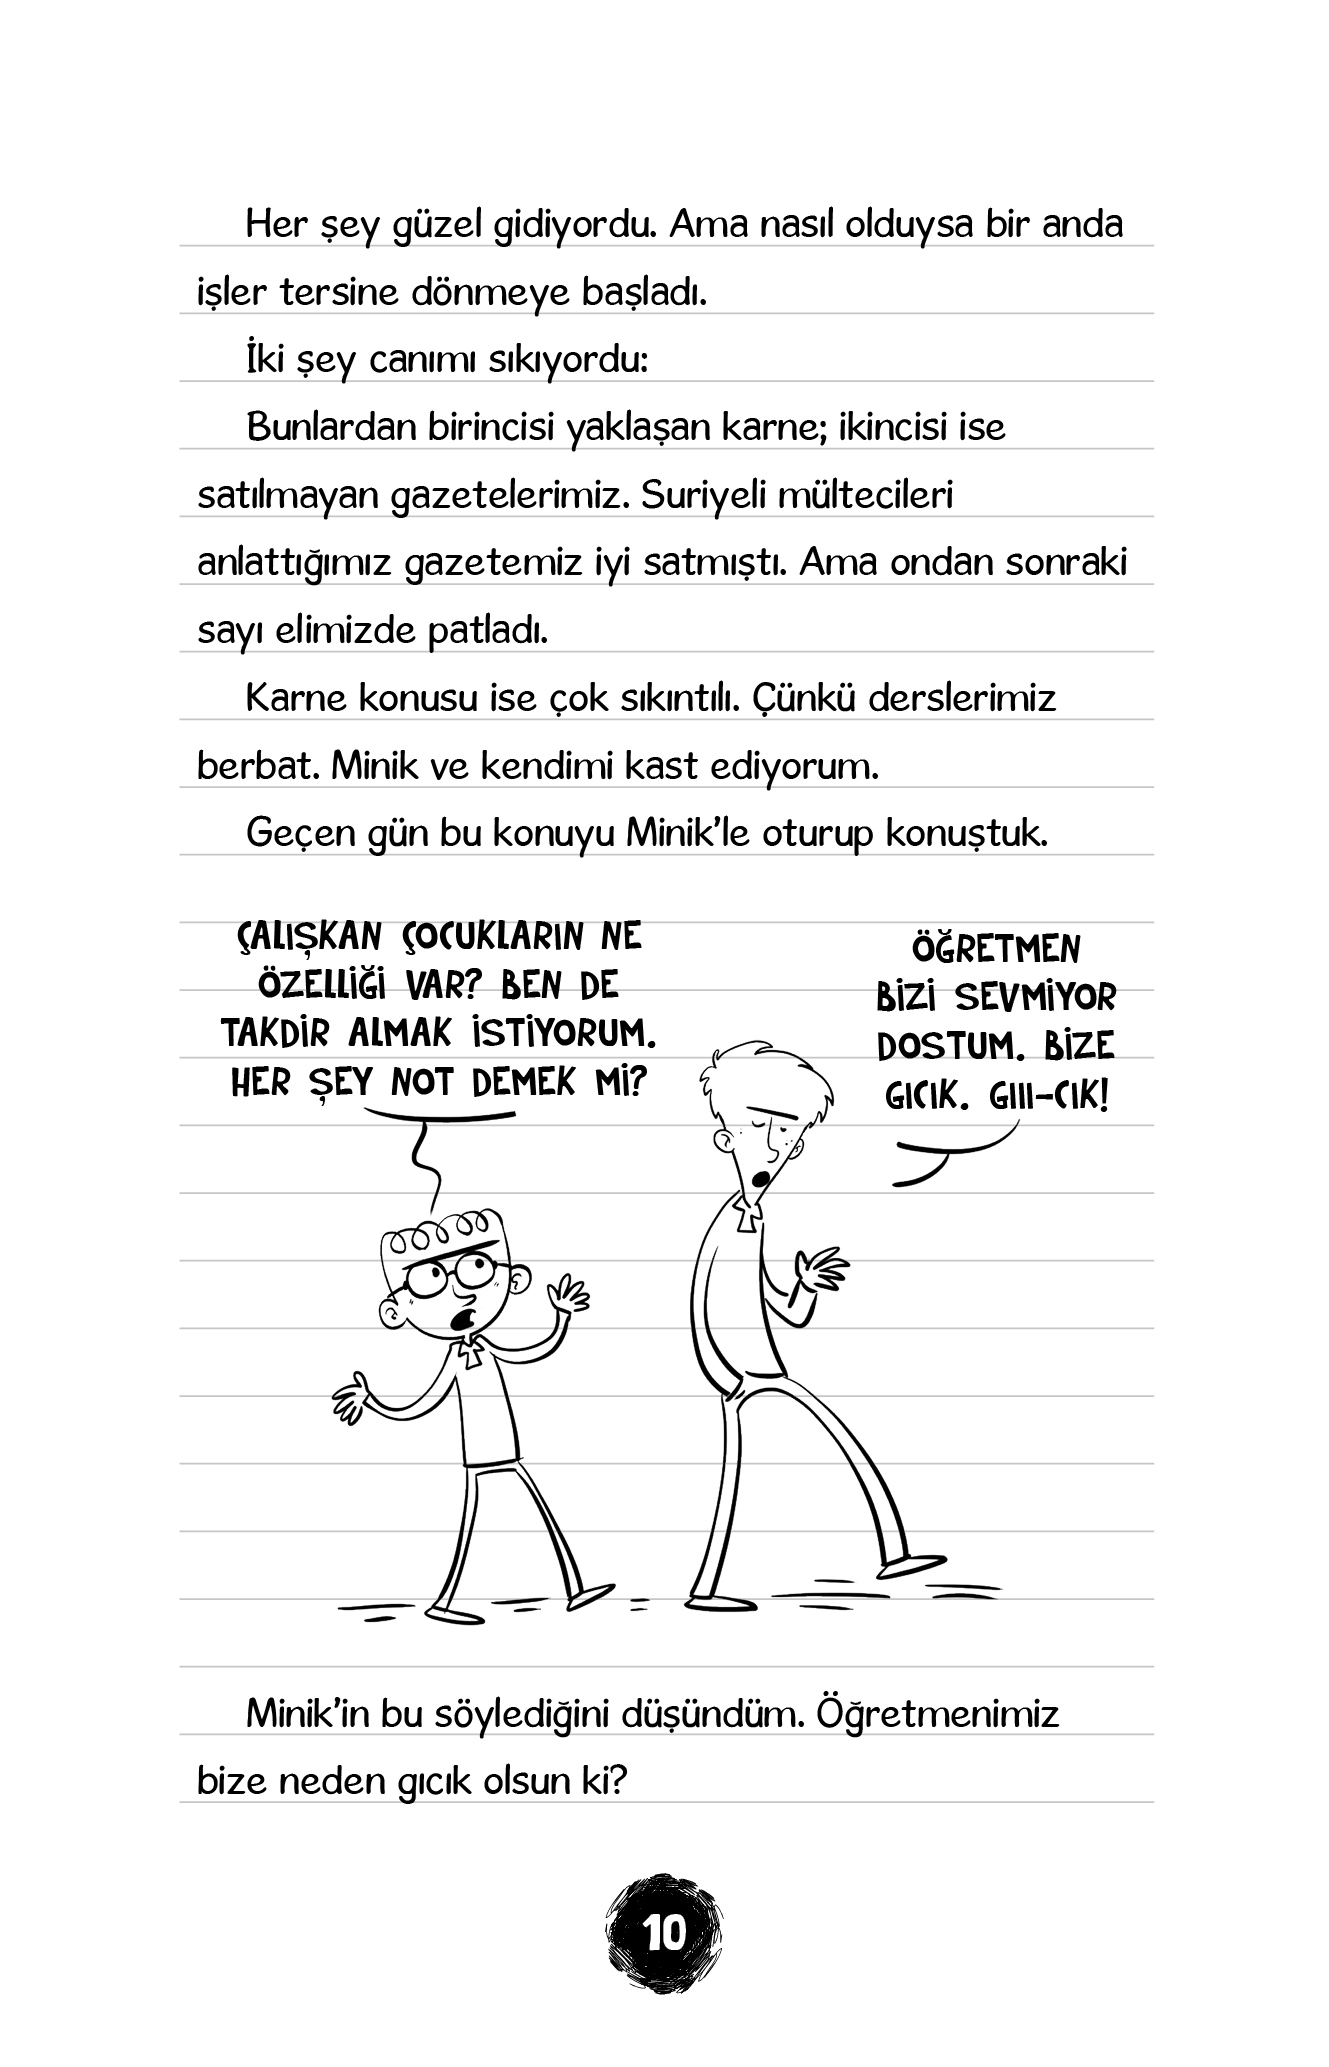 Her şey güzel gidiyordu. Ama nasıl olduysa bir anda
işler tersine dönmeye başladı.
İki şey canımı sıkıyordu:
Bunlardan birincisi yaklaşan karne; ikincisi ise
satılmayan gazetelerimiz. Suriyeli mültecileri
anlattığımız gazetemiz iyi satmıştı. Ama ondan sonraki
sayı elimizde patladı.
Karne konusu ise çok sıkıntılı. Çünkü derslerimiz
berbat. Minik ve kendimi kast ediyorum.
Geçen gün bu konuyu Minik’le oturup konuştuk.
ÇALIŞKAN ÇOCUKLARIN NE
ÖZELLİĞİ VAR? BEN DE
TAKDİR ALMAK İSTİYORUM.
HER ŞEY NOT DEMEK Mİ?
ÖĞRETMEN
BİZİ SEVMİYOR
DOSTUM. BİZE
GICIK. GIII-CIK!
Minik’in bu söylediğini düşündüm. Öğretmenimiz
bize neden gıcık olsun ki?
10